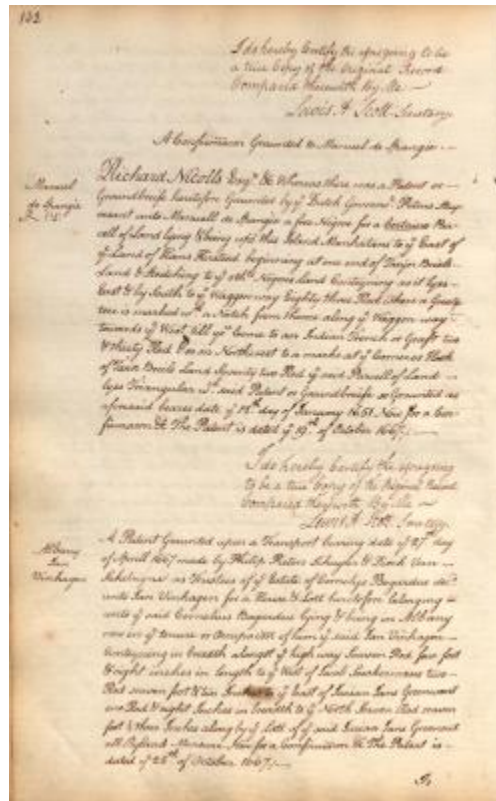 132
I do hereby Certify the aforegoing to be
a true Copy of the Original Record
Compared therewith By Me
Lewis A Scott Secretary
A Confirmacon Graunted to Manuel de Spangie
Manuel
de Spangie
Richard Nicolls Esqr. &c Whereas there was a Patent or
Groundbriefe heretofore Graunted by ye Dutch Governr. Petrus Stuy
vesant unto Manuell de Spangie a free Negroe for a Certaine Par
cell of Land lying & being upon this Island Manhatans to ye East of
ye Land of beginning at one end of
Land & Stretching to ye other Negroes land Conteyning as it lyes
East & by South to ye Waggon way Eighty three Rod where a Greate
tree is marked wth. a Notch from thence along ye Waggon way
towards ye West till you Come to an Indian Trench or Graft two
& thirty Rod North west to a marke at ye Corner or Hook
of Land Seventy two Rod ye said Parcell of Land
lyes Triangular ye. said Patent or Groundbriefe so Graunted as
aforesaid beares date ye day of January 1651. Now for a Con
firmacon &c The Patent is dated ye 19th. of October 1667
I do hereby Certify the aforegoing
to be a true Copy of the Original Record
Compared therewith By Me
Lewis A Scott Secretary
Albany
Jan
Vinhagen
A Patent Graunted upon a Transport bearing date ye 27th day
of Aprill 1667 made by Philip Pieters Schuyler &
as Trustees of ye Estate of Cornelys Bogardus
unto Jan Vinhagen for a House & Lott heretofore belonging
unto ye said Cornelius Bogardus lying & being in Albany
now in ye tenure or Occupation of him ye said Jan Vinhagen
Conteyning in breadth alongst ye high way Seaven Rod foot
& eight inches in length to ye West of two
Rod seaven foot & ten Inches to ye East of
Rod & eight Inches in breadth to ye North Seaven Rod seaven
foot & three Inches along by ye Lott of ye said
all Ryland Measure Now for a Confirmacon &c The Patent is
dated ye 25th of October 1667